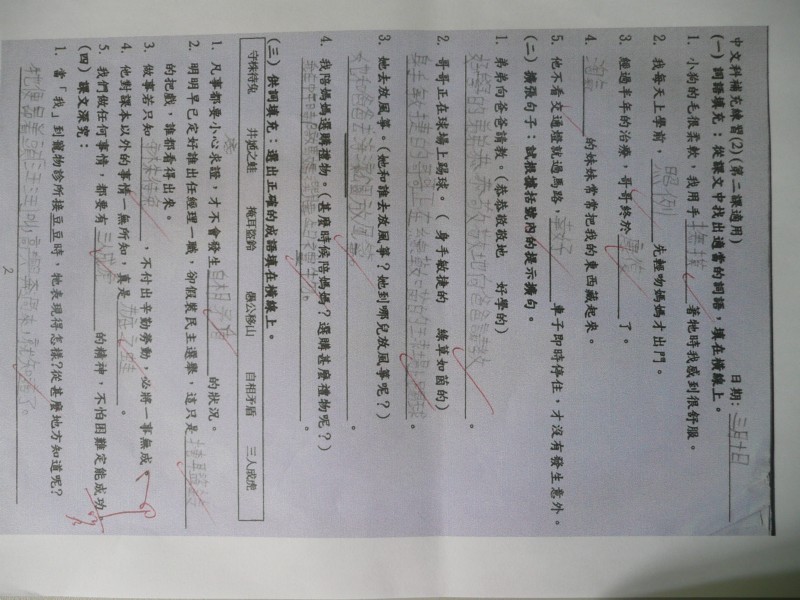 中文科補充練習(2)(第二課適用)　日期: 三月十日
(一) 詞語填充：從課文中找出適當的詞語，填在橫線上。
1. 小狗的毛很柔軟，我用手 著牠時我感到很舒服。
2. 我每天上學前， 照例 先輕吻媽媽才出門。
3. 經過半年的治療，哥哥終於 了。
4. 的妹妹常常把我的東西藏起來。
5. 他不看交通燈就過馬路， 幸好 車子即時停住，才沒有發生意外。
(二) 擴張句子：試根據括號內的提示擴句。
1. 弟弟向爸爸請教。(恭恭敬敬地　好學的)
好學的弟弟恭恭敬敬地向爸爸請教。
2. 哥哥正在球場上踢球。( 身手敏捷的　綠草如茵的)
身手敏捷的哥哥正在綠草如茵的球場上踢球。
3. 她去放風箏。(她和誰去放風箏？她到哪兒放風箏呢？)
她和爸爸去 放風箏。
4. 我陪媽媽選購禮物。(甚麼時候陪媽媽？選購甚麼禮物呢？)
。
(三) 供詞填充：選出正確的成語填在橫線上。
守株待兔　井底之蛙　掩耳盜鈴　愚公移山　自相矛盾　三人成虎
1. 凡事都要小心求證，才不會發生 自相矛盾 的狀況。
2. 明明早已定好誰出任經理一職，卻假裝民主選舉，這只是
的把戲，誰都看得出來。
3. 做事若只知 守株待兔 ，不付出辛勤勞動，必將一事無成。
4. 他對課本以外的事情一無所知，真是 。
5. 我們做任何事情，都要有 的精神，不怕困難定能成功。
(四) 課文深究：
1. 當「我」到寵物診所接豆豆時，牠表現得怎樣?從甚麼地方知道呢?
2